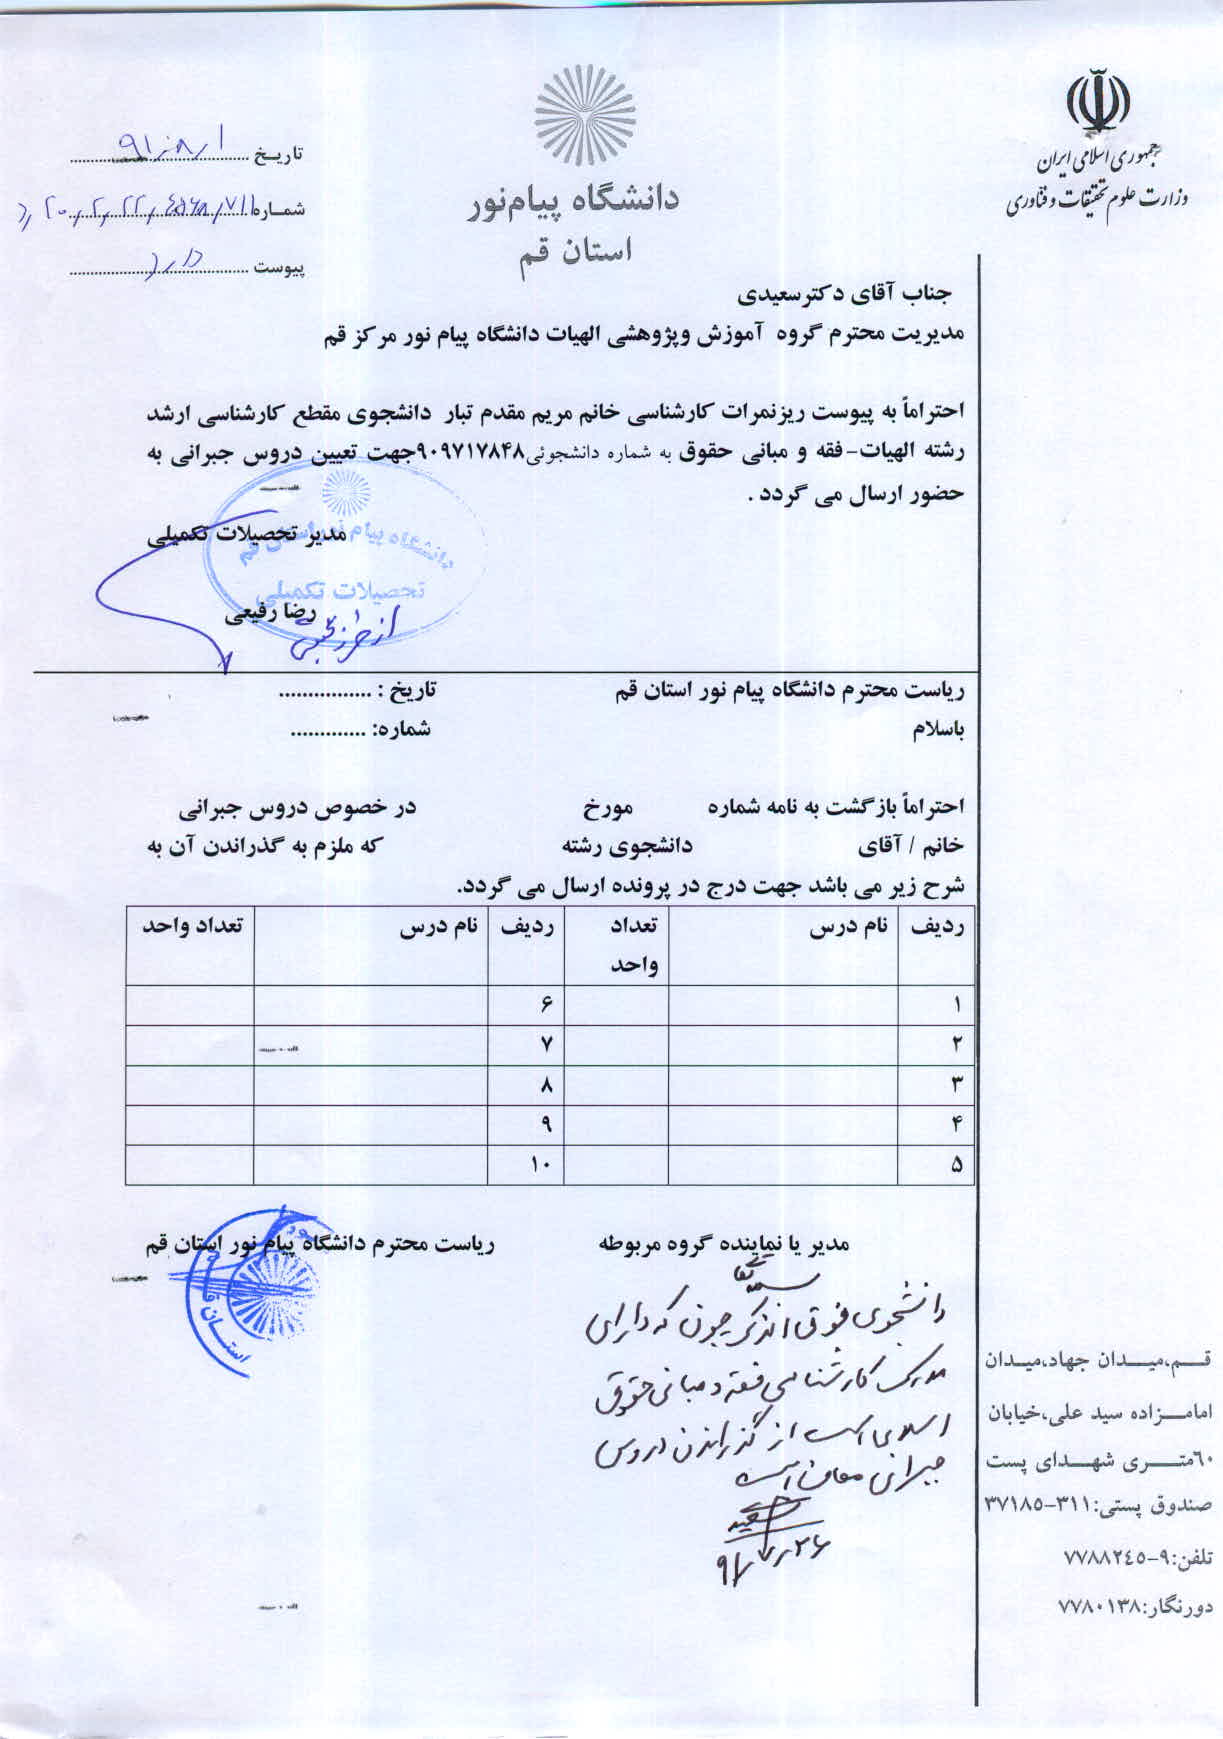 جمهوری اسلامی ایران
وزارت علوم تحقیقات و فناوری
دانشگاه پیام‌نور
استان قم
تاریخ
شماره
پیوست دارد
جناب آقای دکترسعیدی
مدیریت محترم گروه آموزش وپژوهشی الهیات دانشگاه پیام نور مرکز قم
احتراماً به پیوست ریزنمرات کارشناسی خانم مریم مقدم تبار دانشجوی مقطع کارشناسی ارشد
رشته الهیات-فقه و مبانی حقوق به شماره دانشجوئی۹۰۹۷۱۷۸۴۸جهت تعیین دروس جبرانی به
حضور ارسال می گردد .
مدیر تحصیلات تکمیلی
دانشگاه پیام نور استان قم
تحصیلات تکمیلی
رضا رفیعی
از طرف
ریاست محترم دانشگاه پیام نور استان قم تاریخ : ................
باسلام شماره: .............
احتراماً بازگشت به نامه شماره مورخ در خصوص دروس جبرانی
خانم / آقای دانشجوی رشته که ملزم به گذراندن آن به
شرح زیر می باشد جهت درج در پرونده ارسال می گردد.
ردیف نام درس تعداد واحد ردیف نام درس تعداد واحد
۱ ۶
۲ ۷
۳ ۸
۴ ۹
۵ ۱۰
مدیر یا نماینده گروه مربوطه ریاست محترم دانشگاه پیام نور استان قم
دانشجوی فوق الذکر چون که دارای
مدرک کارشناسی فقه و مبانی حقوق
اسلامی است از گذراندن دروس
جبرانی معاف است
استان
قم،میدان جهاد،میدان
امامزاده سید علی،خیابان
٦٠متری شهدای پست
صندوق پستی:۳۱۱-۳۷۱۸٥
تلفن:۹-۷۷۸۸۲٤٥
دورنگار:۷۷۸۰۱۳۸